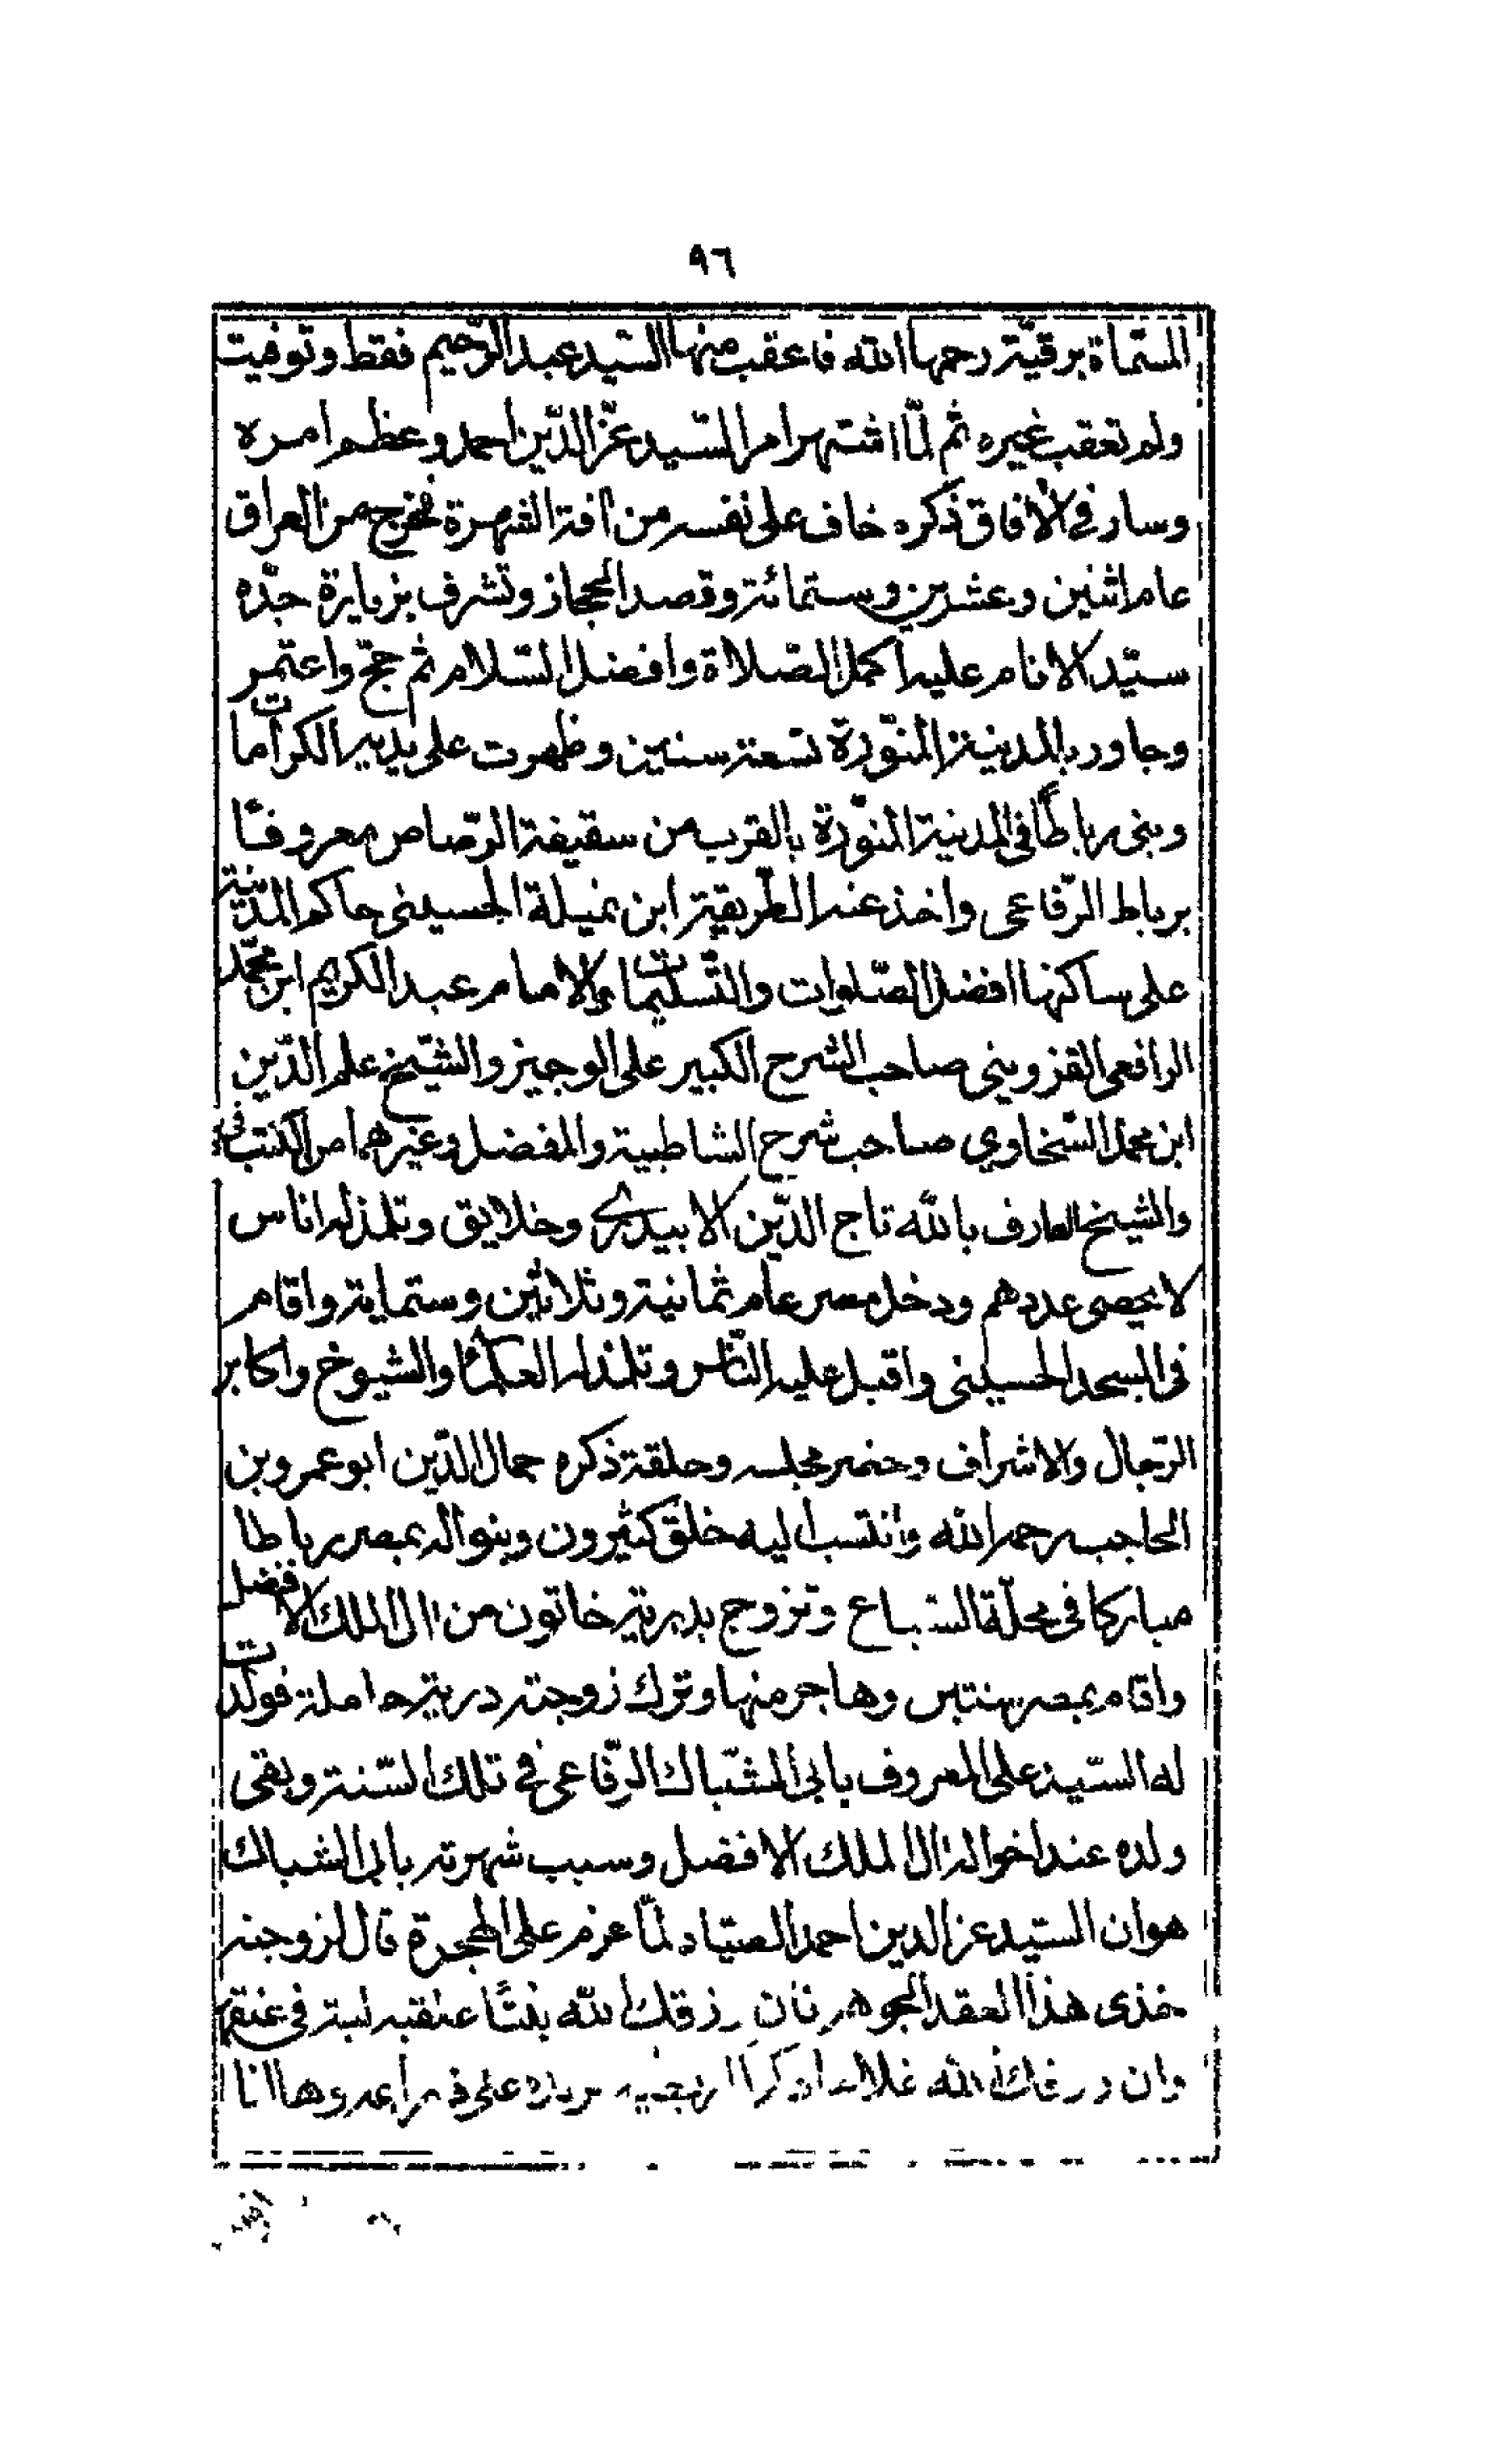 ٩٦
المسماة برقيّة رحمها الله فاعقب منها السيد عبد الرّحيم فقط وتوفيت
ولم تعقب غيره ثم لمّا اشتهر امر السّيد عزّ الدّين احمد وعظم امره
وسار في الأفاق ذكره خاف على نفسه من افة الشهرة فخرج من العراق
عام اثنين وعشرين وستمائة وقصد الحجاز وتشرف بزيارة جدّه
سيّد الانام عليه اكمل الصّلاة وافضل السّلام ثم حجّ واعتمر
وجاور بالمدينة المنوّرة تسعة سنين وظهرت على يديه الكرامات
وبنى رباطًا في المدينة المنوّرة بالقرب من سقيفة الرّصاص معروفًا
برباط الرّفاعى واخذ عنه الطّريقة ابن نميلة الحسينى حاكم المدينة
على ساكنها افضل الصّلوات والتّسليمات والامام عبد الكريم ابن محمّد
الرافعى القزوينى صاحب الشرح الكبير على الوجيز والشّيخ علم الدّين
ابن محمد السّخاوي صاحب شرح الشاطبية والمفضل وغيرهما من الكتب
والشيخ العارف بالله تاج الدّين الابيدرى وخلايق وتلمذ له اناس
لا يحصى عددهم ودخل مصر عام ثمانية وثلاثين وستماية واقام
فى المسجد الحسينى واقبل عليه النّاس وتلمذ له العلماء والشيوخ واكابر
الرّجال والاشراف وحضر مجلسه وحلقة ذكره جمال الدّين ابو عمرو بن
الحاجب رحمه الله وانتسب اليه خلق كثيرون وبنوا له بمصر رباطا
مباركا فى محلّة السّباع وتزوج بدرية خاتون من ال الملك الافضل
واقام بمصر سنتين وهاجر منها وترك زوجته درية حاملة فولدت
له السّيد على المعروف بابى الشّباك الرّفاعى في تلك السّنة وبقى
ولده عند اخواله ال الملك الافضل وسبب شهرته بابى الشباك
هو ان السّيد عز الدين احمد الصيّاد لمّا عزم على الهجرة قال لزوجته
خذى هذا العقد الجوهر فان رزقك الله بنتًا علقيه لبة في عنقها
وان رزقك الله غلاما ذكرًا وها انا